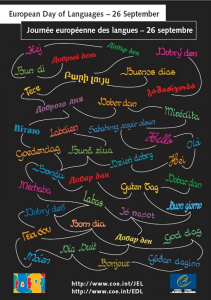 European Day of Languages – 26 September
Journée européenne des langues – 26 septembre
Hej Добър ден Dobrý den
Добрый день
Bun di Բարի լույս Buenos dias
Tere გამარჯობა
Доброго дня Dobar dan
Вітаю Labdien Hello
Goedendag Bună ziua Olá Hei
Dzień dobry
Bongu Добар дан
Merhaba Guten Tag Dobar dan
Labas
Dobrý deň Buon giorno
Γεια σου Bom dia Jó napot
Добар ден God dag
Moien Dia Duit
Bonjour Góðan daginn
http://www.coe.int/JEL
http://www.coe.int/EDL